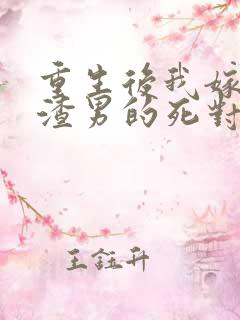 重生後我嫁
渣男的死對
王鈺升